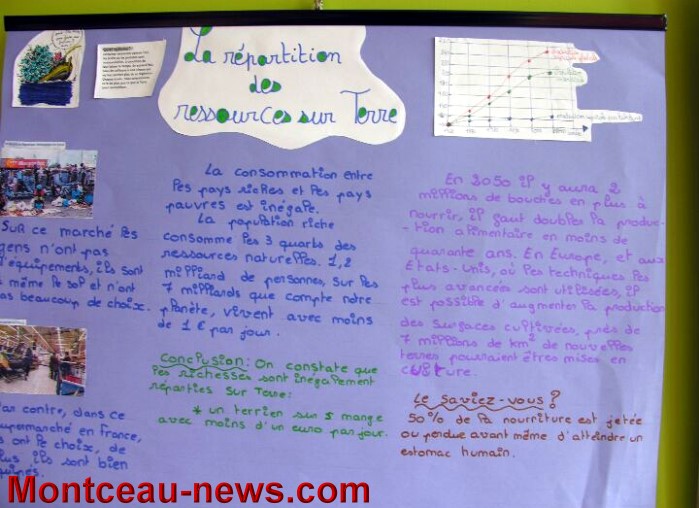 La répartition
des
ressources sur Terre
Sur ce marché les
gens n'ont pas
d'équipements, ils sont
à même le sol et n'ont
pas beaucoup de choix.
Par contre, dans ce
supermarché en France,
ils ont le choix, de
plus ils sont bien
La consommation entre
les pays riches et les pays
pauvres est inégale.
La population riche
consomme les 3 quarts des
ressources naturelles. 1,2
milliard de personnes, sur les
7 milliards que compte notre
planète, vivent avec moins
de 1 € par jour.
Conclusion: On constate que
les richesses sont inégalement
réparties sur Terre:
* un terrien sur 5 mange
avec moins d'un euro par jour.
En 2050 il y aura 2
millions de bouches en plus à
nourrir, il faut doubler la produc-
-tion alimentaire en moins de
quarante ans. En Europe, et aux
États-Unis, où les techniques les
plus avancées sont utilisées, il
est possible d'augmenter la production
des surfaces cultivées, près de
7 millions de km² de nouvelles
terres pourraient êtres mises en
culture.
Le saviez-vous?
50% de la nourriture est jetée
ou perdue avant même d'atteindre un
estomac humain.
Montceau-news.com